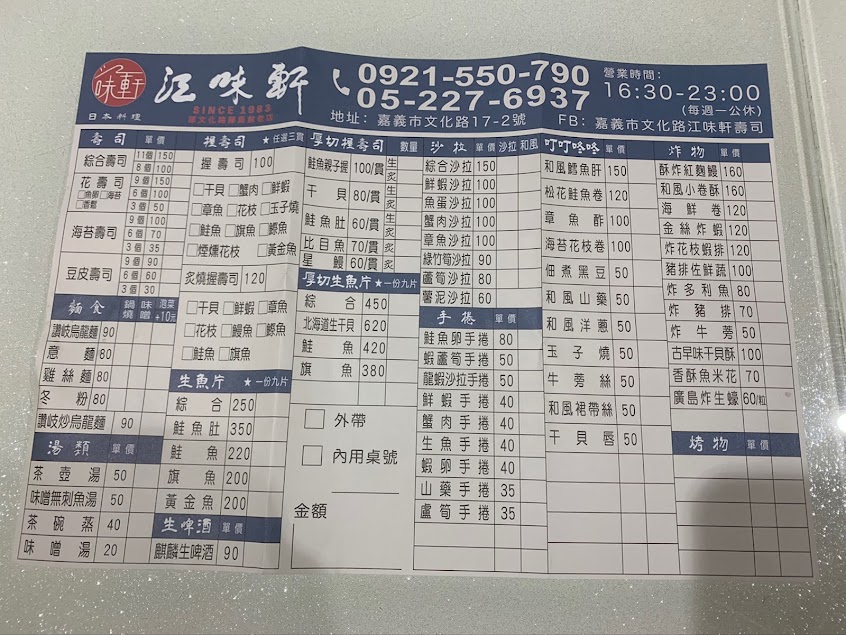 味軒
日本料理
江味軒
SINCE 1983
0921-550-790
05-227-6937
地址：嘉義市文化路17-2號
營業時間：
16:30-23:00
(每週一公休)
FB：嘉義市文化路江味軒壽司
壽司 單價
綜合壽司 11個 150
8個 100
花壽司 9個 150
□魚卵□海苔 6個 100
□香鬆 3個 50
海苔壽司 9個 100
6個 70
3個 35
豆皮壽司 9個 90
6個 60
3個 30
麵食 鍋燒 味噌 泡菜+10元
讚岐烏龍麵 90
意麵 80
雞絲麵 80
冬粉 80
讚岐炒烏龍麵 90
湯類 單價
茶壺湯 50
味噌無刺魚湯 50
茶碗蒸 40
味噌湯 20
握壽司 ★任選三貫
握壽司 100
□干貝□蟹肉□鮮蝦
□章魚□花枝□玉子燒
□鮭魚□旗魚□鰶魚
□煙燻花枝 □黃金魚
炙燒握壽司 120
□干貝□鮮蝦□章魚
□花枝□鰻魚□鰶魚
□鮭魚□旗魚
生魚片 ★一份九片
綜合 250
鮭魚肚 350
鮭魚 220
旗魚 200
黃金魚 200
生啤酒 單價
麒麟生啤酒 90
厚切握壽司 數量
鮭魚親子握 100/貫 生 炙
干貝 80/貫 生 炙
鮭魚肚 60/貫 生 炙
比目魚 70/貫 生
星鰻 60/貫 炙
厚切生魚片 ★一份九片
綜合 450
北海道生干貝 620
鮭魚 420
旗魚 380
□ 外帶
□ 內用桌號
金額
沙拉 單價 沙拉 和風
綜合沙拉 150
鮮蝦沙拉 100
魚蛋沙拉 100
蟹肉沙拉 100
章魚沙拉 100
綠竹筍沙拉 90
蘆筍沙拉 80
薯泥沙拉 60
手捲 單價
鮭魚卵手捲 80
蝦蘆筍手捲 50
龍蝦沙拉手捲 50
鮮蝦手捲 40
蟹肉手捲 40
生魚手捲 40
蝦卵手捲 40
山藥手捲 35
蘆筍手捲 35
叮叮咚咚 單價
和風鱈魚肝 150
松花鮭魚卷 120
章魚酢 100
海苔花枝卷 100
佃煮黑豆 50
和風山藥 50
和風洋蔥 50
玉子燒 50
牛蒡絲 50
和風裙帶絲 50
干貝唇 50
炸物 單價
酥炸紅麴鰻 160
和風小卷酥 160
海鮮卷 120
金絲炸蝦 120
炸花枝蝦排 120
豬排佐鮮蔬 100
炸多利魚 80
炸豬排 70
炸牛蒡 50
古早味干貝酥 100
香酥魚米花 70
廣島炸生蠔 60/粒
烤物 單價